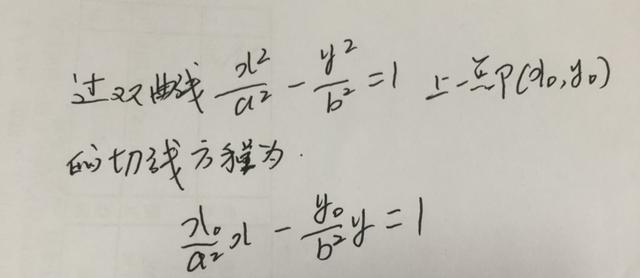 过双曲线 x²/a² - y²/b² = 1 上一点P(x₀,y₀)
的切线方程为.
x₀/a² x - y₀/b² y = 1